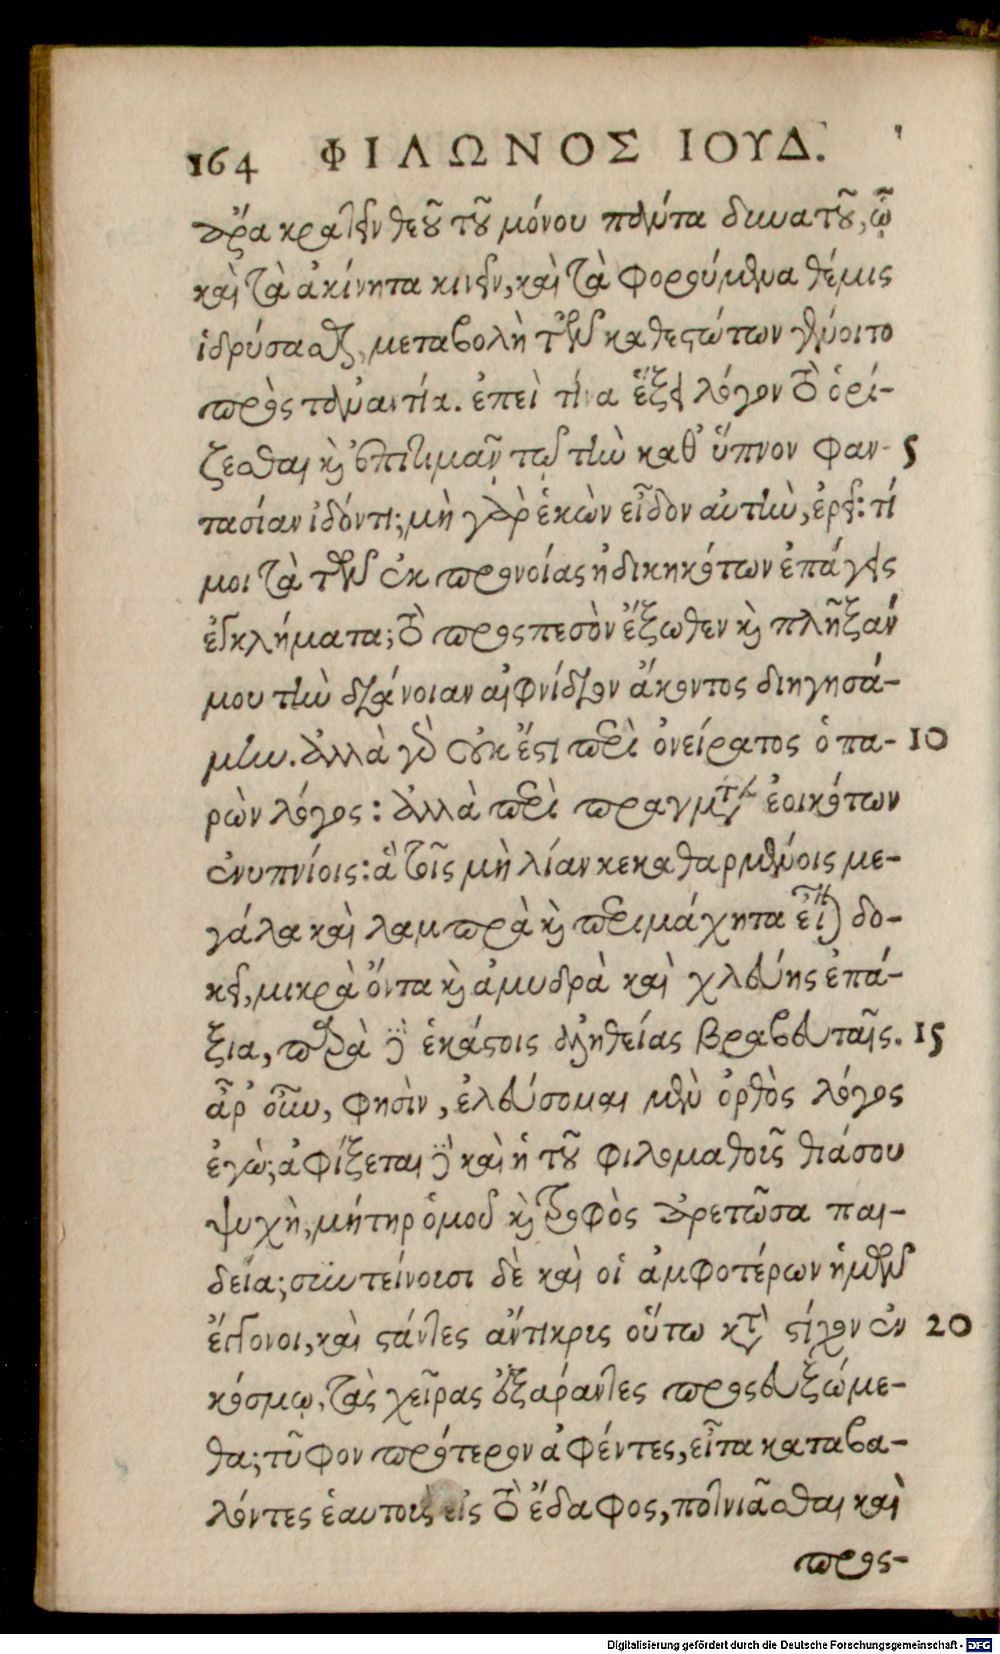 164 ΦΙΛΩΝΟΣ ΙΟΥΔ.
παρὰ κρατεῖν θεοῦ τοῦ μόνου πάντα δυνατοῦ, ᾧ
καὶ τὰ ἀκίνητα κινεῖν, καὶ τὰ φορούμενα θέμις
ἱδρύσασθαι, μεταβολὴ τῶν καθεστώτων γένοιτο
πρὸς τοὐναντία. ἐπεὶ τίνα ἕξει λόγον τὸ ὀρί-
ζεσθαι καὶ ἐπιτιμᾷν τῷ τὴν καθ' ὕπνον φαν- 5
τασίαν ἰδόντι; μὴ γὰρ ἑκὼν εἶδον αὐτὴν, ἐρεῖ: τί
μοι τὰ τῶν ἐκ προνοίας ἠδικηκότων ἐπάγεις
ἐγκλήματα; τὸ προσπεσὸν ἔξωθεν καὶ πλῆξάν
μου τὴν διάνοιαν αἰφνίδιον ἄκοντος διηγησά-
μην. ἀλλὰ γὰρ οὐκ ἔστι περὶ ὀνείρατος ὁ πα- 10
ρὼν λόγος: ἀλλὰ περὶ πραγμάτων ἐοικότων
ἐνυπνίοις: ἃ τοῖς μὴ λίαν κεκαθαρμένοις με-
γάλα καὶ λαμπρὰ καὶ περιμάχητα εἶναι δο-
κεῖ, μικρὰ ὄντα καὶ ἀμυδρὰ καὶ χλεύης ἐπά-
ξια, παρὰ τοῖς ἑκάστοις ἀληθείας βραβευταῖς. 15
ἆρ' οὖν, φησὶν, ἐλεύσομαι μὲν ὀρθὸς λόγος
ἐγὼ; ἀφίξεται δὲ καὶ ἡ τοῦ φιλομαθοῖς θιάσου
ψυχὴ, μήτηρ ὁμοῦ καὶ τροφὸς ἀρετῶσα παι-
δεία; συντείνουσι δὲ καὶ οἱ ἀμφοτέρων ἡμῶν
ἔκγονοι, καὶ στάντες ἄντικρις οὕτω κατὰ στίχον ἐν 20
κόσμῳ, τὰς χεῖρας ἐξάραντες προσευξώμε-
θα; τῦφον πρότερον ἀφέντες, εἶτα καταβα-
λόντες ἑαυτοὺς εἰς τὸ ἔδαφος, ποτνιᾶσθαι καὶ
προς-
Digitalisierung gefördert durch die Deutsche Forschungsgemeinschaft - DFG